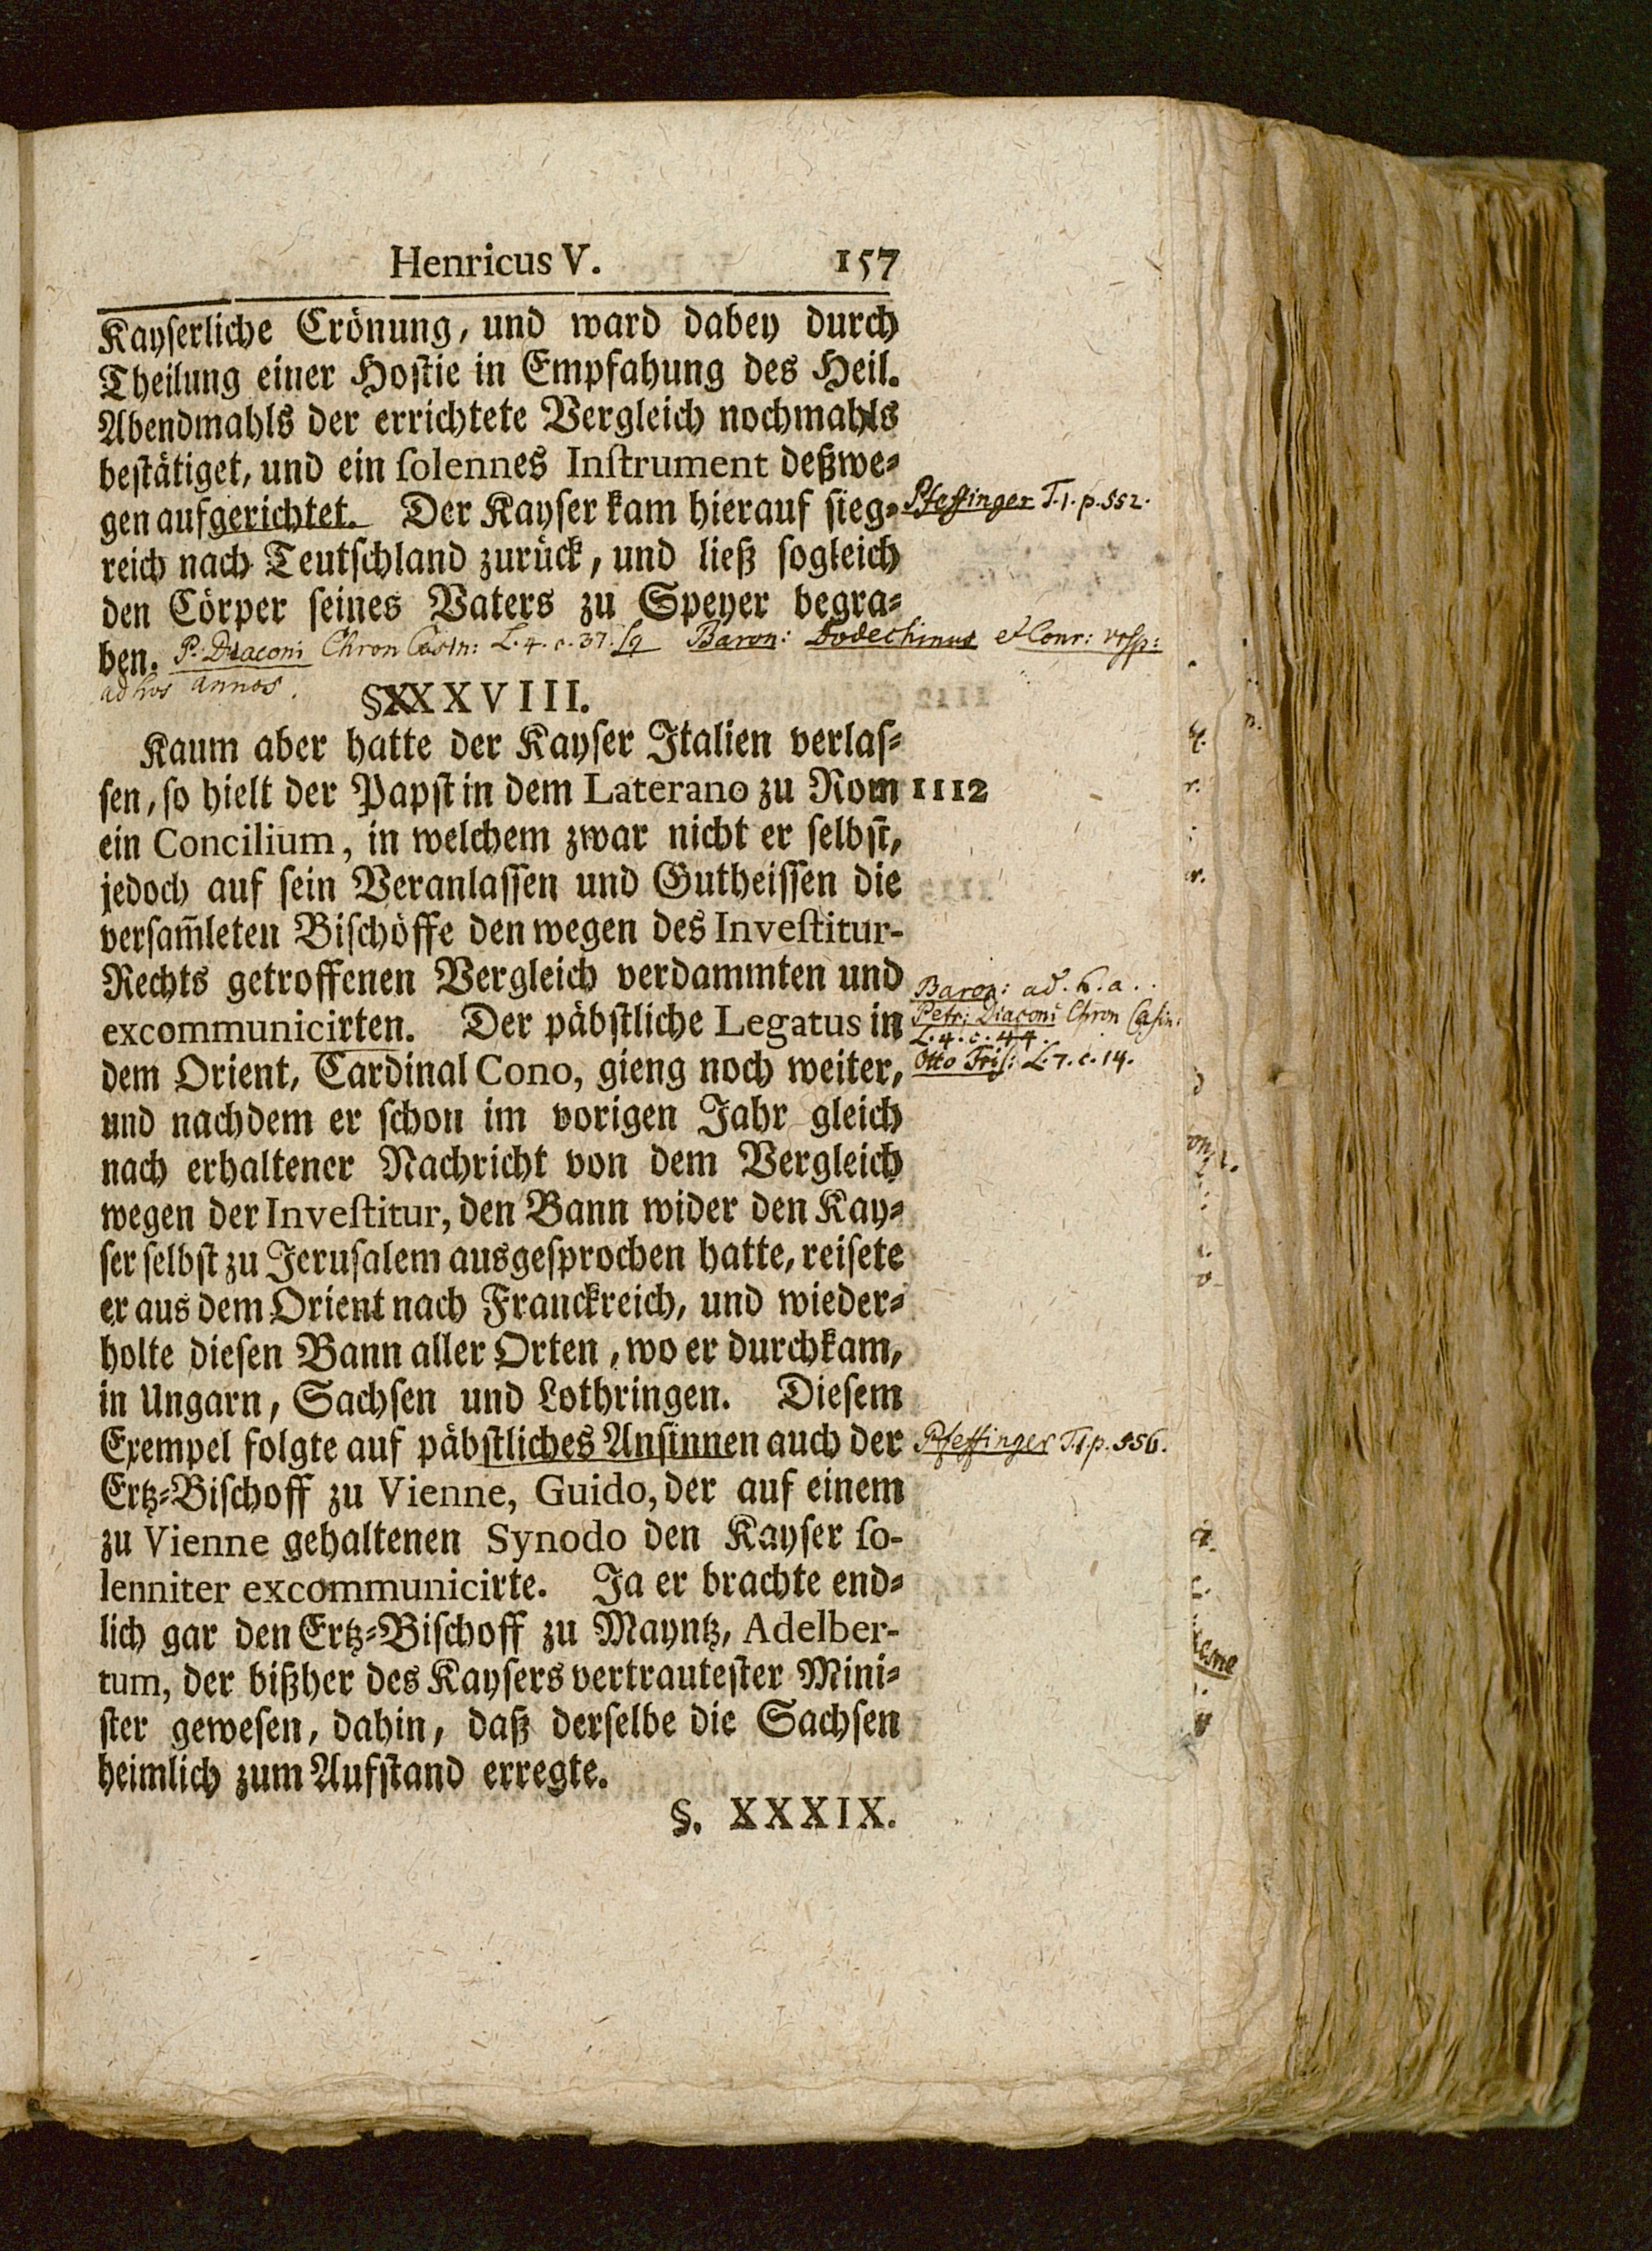 Henricus V. 157
Kayserliche Crönung, und ward dabey durch
Theilung einer Hostie in Empfahung des Heil.
Abendmahls der errichtete Vergleich nochmahls
bestätiget, und ein solennes Instrument deßwe-
gen aufgerichtet. Der Kayser kam hierauf sieg-
Pfeffinger T.1. p. 552.
reich nach Teutschland zurück, und ließ sogleich
den Cörper seines Vaters zu Speyer begra-
ben. P. Diaconi Chron Casin: L. 4. c. 37. sq Baron: Dodechinus et Conr: Ursp:
ad hos annos.
§XXXVIII.
Kaum aber hatte der Kayser Italien verlas-
sen, so hielt der Papst in dem Laterano zu Rom 1112
ein Concilium, in welchem zwar nicht er selbst,
jedoch auf sein Veranlassen und Gutheissen die
versam̅leten Bischöffe den wegen des Investitur-
Rechts getroffenen Vergleich verdammten und
Baron: ad. h. a.
excommunicirten. Der päbstliche Legatus in
Petr: Diaconi Chron Casin:
L. 4. c. 44.
dem Orient, Cardinal Cono, gieng noch weiter,
Otto Fris: L. 7. c. 14.
und nachdem er schon im vorigen Jahr gleich
nach erhaltener Nachricht von dem Vergleich
wegen der Investitur, den Bann wider den Kay-
ser selbst zu Jerusalem ausgesprochen hatte, reisete
er aus dem Orient nach Franckreich, und wieder-
holte diesen Bann aller Orten, wo er durchkam,
in Ungarn, Sachsen und Lothringen. Diesem
Exempel folgte auf päbstliches Ansinnen auch der
Pfeffinger T.1 p. 556.
Ertz-Bischoff zu Vienne, Guido, der auf einem
zu Vienne gehaltenen Synodo den Kayser so-
lenniter excommunicirte. Ja er brachte end-
lich gar den Ertz-Bischoff zu Mayntz, Adelber-
tum, der bißher des Kaysers vertrautester Mini-
ster gewesen, dahin, daß derselbe die Sachsen
heimlich zum Aufstand erregte.
§. XXXIX.